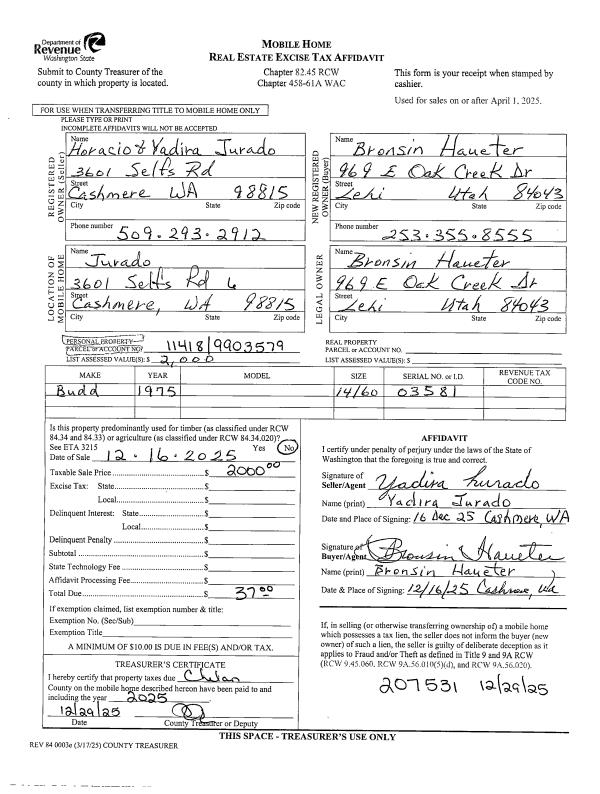 Department of
Revenue
Washington State
MOBILE HOME
REAL ESTATE EXCISE TAX AFFIDAVIT
Submit to County Treasurer of the
county in which property is located.
Chapter 82.45 RCW
Chapter 458-61A WAC
This form is your receipt when stamped by
cashier.
Used for sales on or after April 1, 2025.
FOR USE WHEN TRANSFERRING TITLE TO MOBILE HOME ONLY
PLEASE TYPE OR PRINT
INCOMPLETE AFFIDAVITS WILL NOT BE ACCEPTED
REGISTERED
OWNER (Seller)
Name
Horacio & Yadira Jurado
3601 Selfs Rd
Street
Cashmere WA 98815
City State Zip code
Phone number
509.293.2912
NEW REGISTERED
OWNER (Buyer)
Name
Bronsin Haueter
969 E Oak Creek Dr
Street
Lehi Utah 84043
City State Zip code
Phone number
253.355.8555
LOCATION OF
MOBILE HOME
Name
Jurado
3601 Selfs Rd 6
Street
Cashmere, WA 98815
City State Zip code
LEGAL OWNER
Name
Bronsin Haueter
969 E Oak Creek Dr
Street
Lehi Utah 84043
City State Zip code
PERSONAL PROPERTY
PARCEL or ACCOUNT NO. 11418/9903579
LIST ASSESSED VALUE(S): $ 2,000
REAL PROPERTY
PARCEL or ACCOUNT NO.
LIST ASSESSED VALUE(S): $
MAKE YEAR MODEL SIZE SERIAL NO. or I.D. REVENUE TAX
CODE NO.
Budd 1975 14/60 03581
Is this property predominantly used for timber (as classified under RCW
84.34 and 84.33) or agriculture (as classified under RCW 84.34.020)?
See ETA 3215 Yes No
Date of Sale 12.16.2025
Taxable Sale Price $ 2000.00
Excise Tax: State $
Local $
Delinquent Interest: State $
Local $
Delinquent Penalty $
Subtotal $
State Technology Fee $
Affidavit Processing Fee $
Total Due $ 37.00
If exemption claimed, list exemption number & title:
Exemption No. (Sec/Sub)
Exemption Title
A MINIMUM OF $10.00 IS DUE IN FEE(S) AND/OR TAX.
TREASURER'S CERTIFICATE
I hereby certify that property taxes due Chelan
County on the mobile home described hereon have been paid to and
including the year 2025
12/29/25
Date County Treasurer or Deputy
AFFIDAVIT
I certify under penalty of perjury under the laws of the State of
Washington that the foregoing is true and correct.
Signature of
Seller/Agent Yadira Jurado
Name (print) Yadira Jurado
Date and Place of Signing: 16 Dec 25 Cashmere, WA
Signature of
Buyer/Agent Bronsin Haueter
Name (print) Bronsin Haueter
Date & Place of Signing: 12/16/25 Cashmere, Wa
If, in selling (or otherwise transferring ownership of) a mobile home
which possesses a tax lien, the seller does not inform the buyer (new
owner) of such a lien, the seller is guilty of deliberate deception as it
applies to Fraud and/or Theft as defined in Title 9 and 9A RCW
(RCW 9.45.060, RCW 9A.56.010(5)(d), and RCW 9A.56.020).
207531 12/29/25
THIS SPACE - TREASURER'S USE ONLY
REV 84 0003e (3/17/25) COUNTY TREASURER